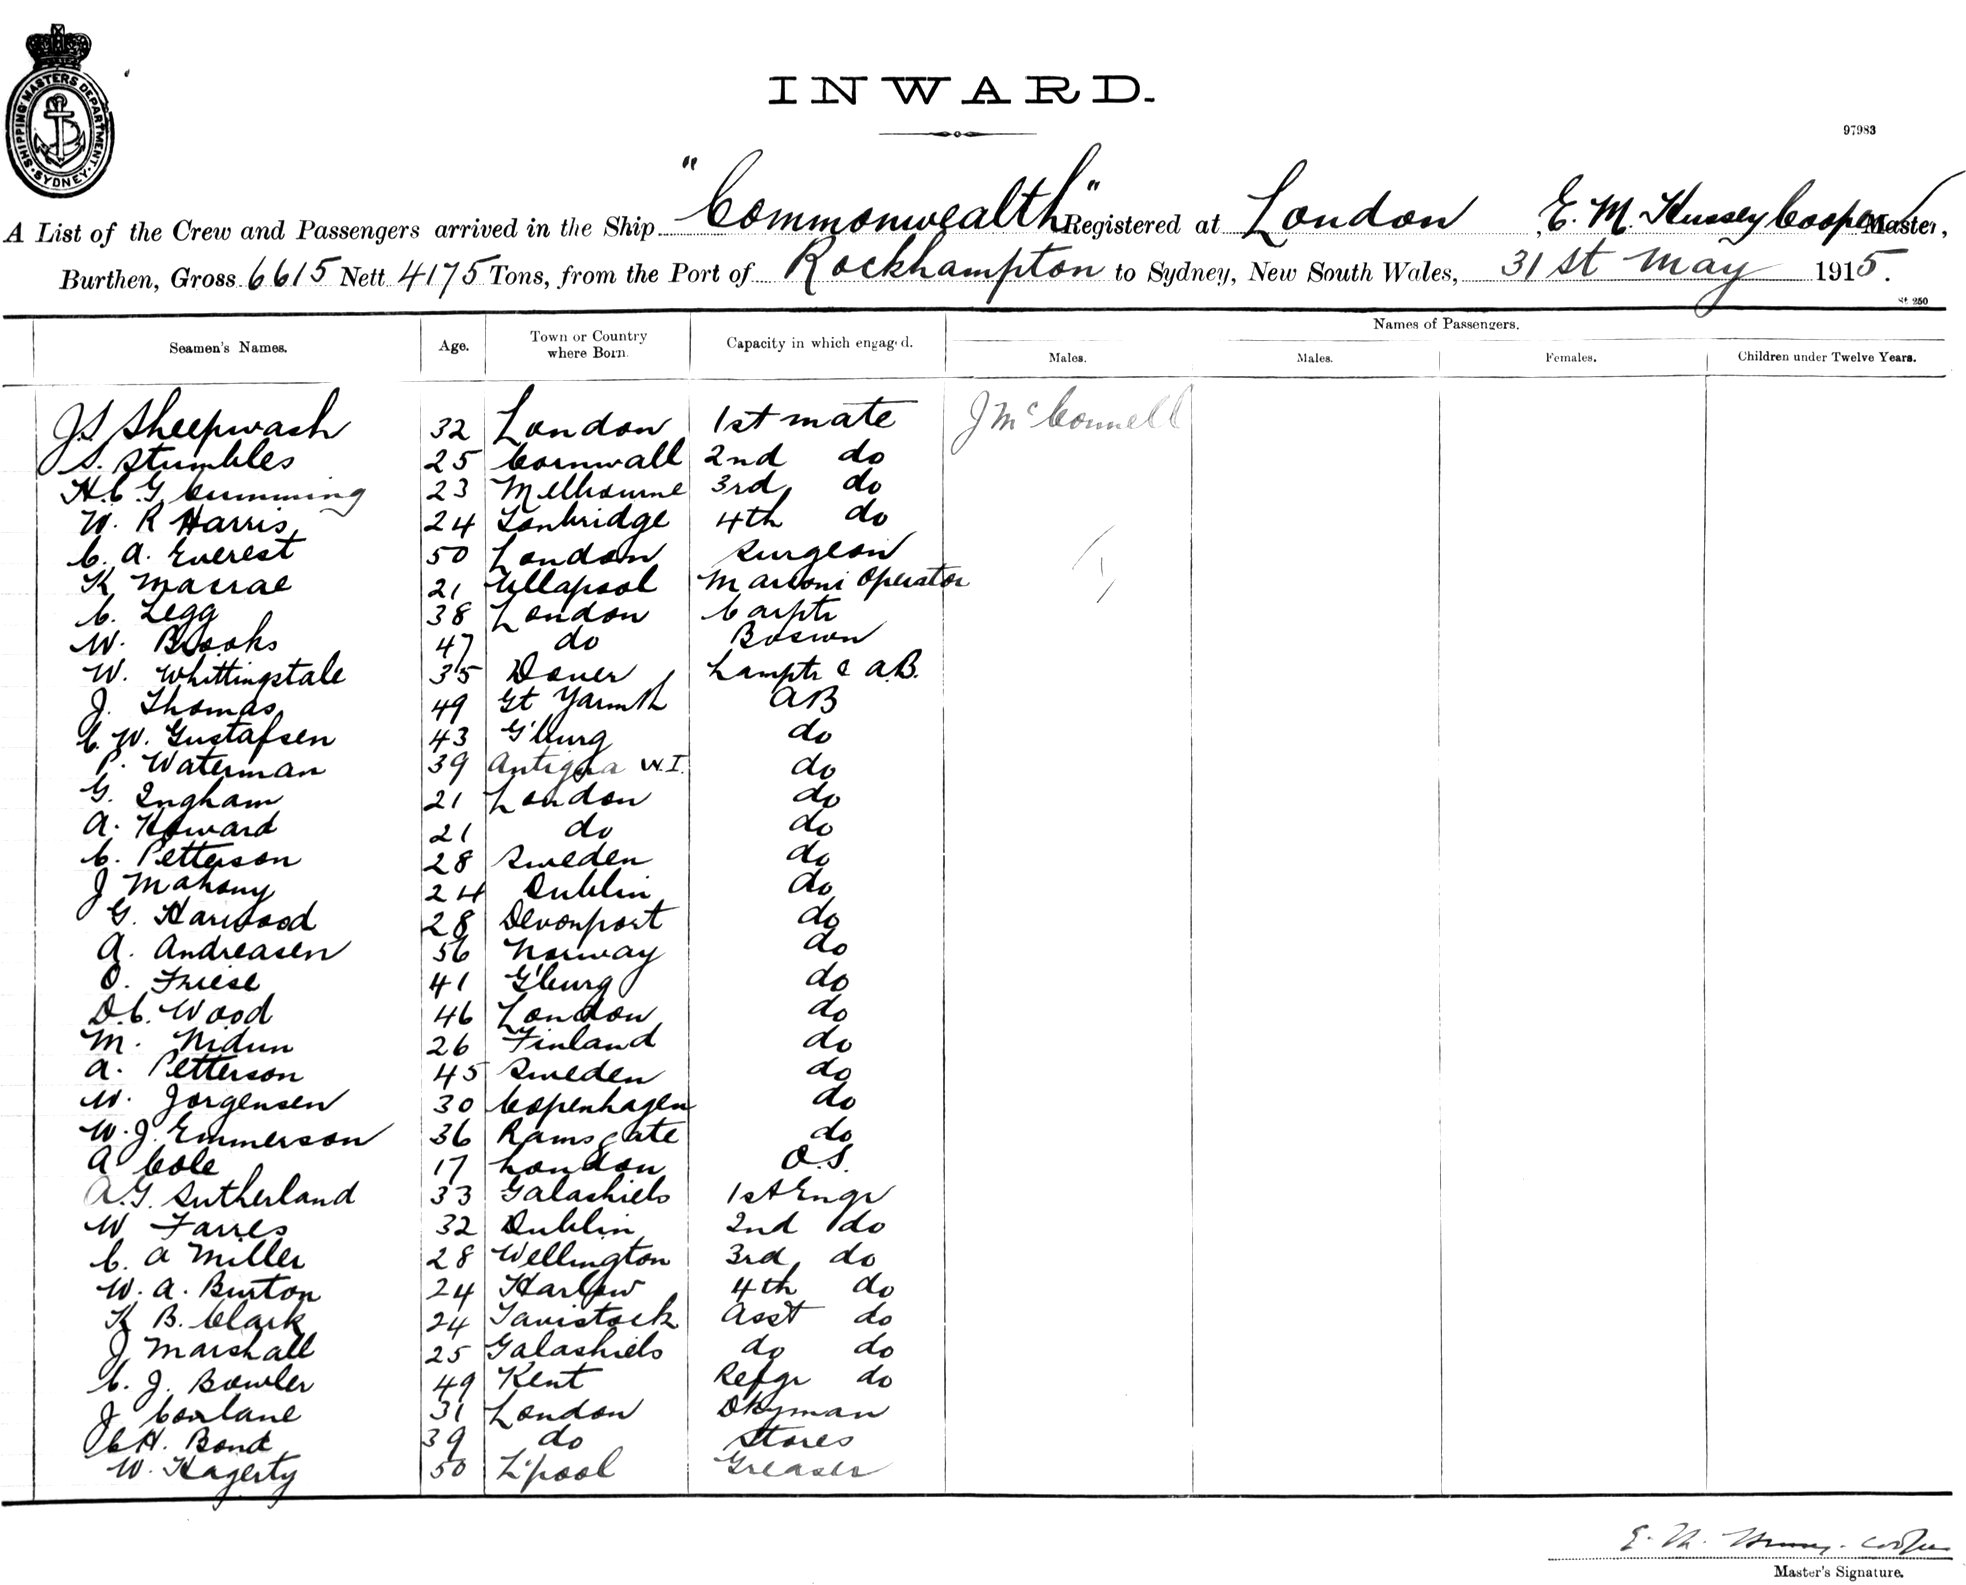 SHIPPING MASTERS DEPARTMENT
SYDNEY
INWARD.
97983
A List of the Crew and Passengers arrived in the Ship "Commonwealth" Registered at London E. M. Hussey Cooper Master,
Burthen, Gross 6615 Nett 4175 Tons, from the Port of Rockhampton to Sydney, New South Wales, 31st May 1915.
St 250
Seamen's Names. Age. Town or Country where Born. Capacity in which engaged. Names of Passengers.
Males. Males. Females. Children under Twelve Years.
J S Sheepwash 32 London 1st mate J McConnell
S. Stumbles 25 Cornwall 2nd do
H. C. G Cumming 23 Melbourne 3rd do
W. R Harris 24 Tonbridge 4th do
C. A. Everest 50 London Surgeon
K Macrae 21 Ullapool Marconi Operator
C. Legg 38 London Carptr
W. Brooks 47 do Bosun
W. Whittingstale 35 Dover Lamptr & A.B.
J. Thomas 49 Gt Yarmth AB
C. W. Gustafsen 43 G'burg do
P. Waterman 39 Antigua W.I. do
G. Ingham 21 London do
A. Howard 21 do do
C. Petterson 28 Sweden do
J Mahony 24 Dublin do
G. Harwood 28 Devonport do
A. Andreasen 56 Norway do
O. Friese 41 G'burg do
D. C. Wood 46 London do
M. Nidun 26 Finland do
A. Petterson 45 Sweden do
W. Jorgensen 30 Copenhagen do
W. J. Emmerson 36 Ramsgate do
A Cole 17 London O.S.
A. G. Sutherland 33 Galashiels 1st Engr
W Farres 32 Dublin 2nd do
C. A Miller 28 Wellington 3rd do
W. A. Burton 24 Harlow 4th do
K B. Clark 24 Tavistock Asst do
J Marshall 25 Galashiels do do
C. J. Bowler 49 Kent Refgr do
J Coxlane 31 London Dkyman
C H. Bond 39 do Stores
W. Hagerty 50 L'pool Greaser
E. M. Hussey-Cooper
Master's Signature.